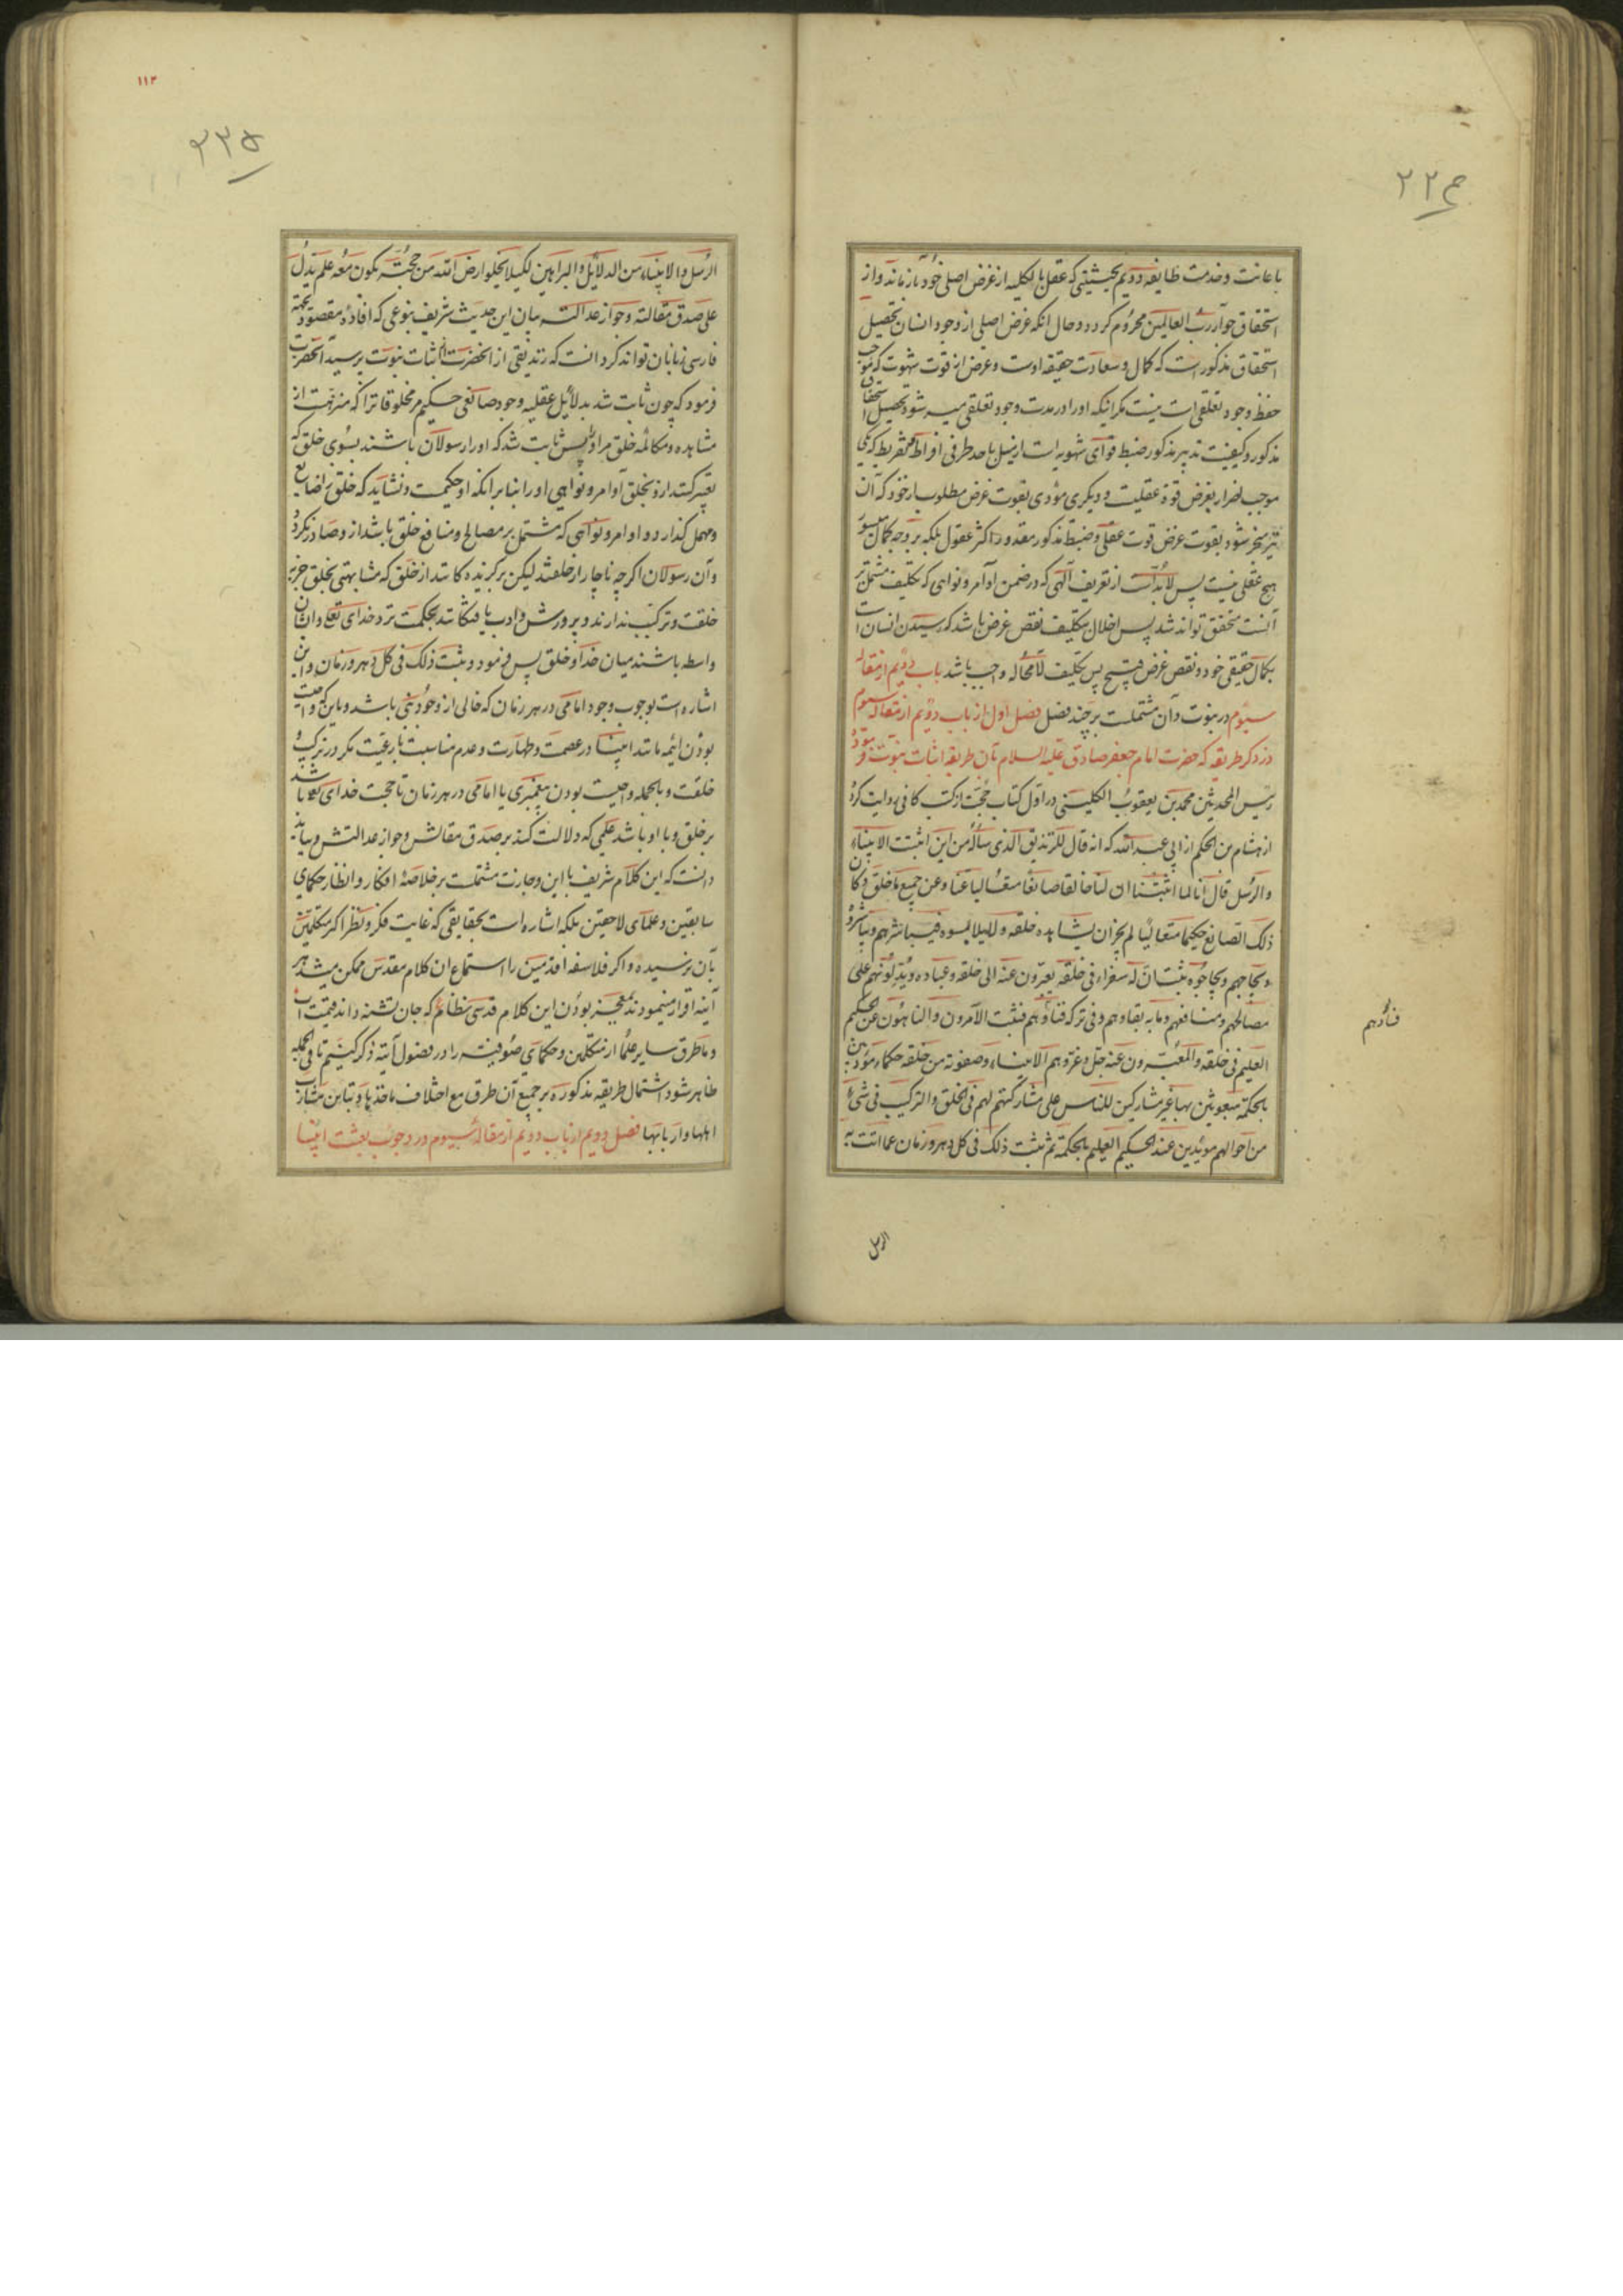 باعانت و خدمت طایفه دویم بحیثیتی که عقل بالکلیه از غرض اصلی خود باز ماند و از
استحقاق جوار رب العالمین محروم کردد و حال انکه غرض اصلی از وجود انسان تحصیل
استحقاق مذکور است که کمال و سعادت حقیقه اوست و غرض از قوت شهوت که موجب
حفظ وجود تعلقی است نیست مکر اینکه او را در مدت وجود تعلقی میسر شود تحصیل استحقاق
مذکور و کیفیت تدبیر مذکور ضبط قوای شهویه است از میل باحد طرفی افراط و تفریط که یکی
موجب اضرار بغرض قوة عقلیت و دیکری مؤدی بفوت غرض مطلوب از خود که آن
نیز منجر شود بفوت غرض قوت عقلی و ضبط مذکور مقدور اکثر عقول بلکه بر وجه کمال میسور
هیچ عقلی نیست پس لابد است از تعریف آلهی که در ضمن اوامر و نواهی که تکلیف مشتمل بر
آنست متحقق تواند شد پس اخلال بتکلیف نقض غرض باشد که رسیدن انسان است
بکمال حقیقی خود و نقض غرض قبیح پس تکلیف لامحاله واجب باشد باب دویم از مقاله
سیوم در نبوت و آن مشتملست بر چند فصل فصل اول از باب دویم از مقاله سیوم
در ذکر طریقه که حضرت امام جعفر صادق علیه السلام بآن طریقه اثبات نبوت فرموده
رئیس المحدثین محمد بن یعقوب الکلینی در اول کتاب حجت از کتب کافی روایت کرده
از هشام بن الحکم از ابی عبدالله که انه قال للزندیق الذی سأله من این اثبتت الانبیاء
والرسل قال انا لما اثبتنا ان لنا خالقا صانعا متعالیا عنا وعن جمیع ما خلق وکان
ذلک الصانع حکیما متعالیا لم یجز ان یشاهده خلقه ولا یلامسوه فیباشرهم ویباشروه
ویحاجهم ویحاجوه ثبت ان له سفراء فی خلقه یعبرون عنه الی خلقه وعباده ویدلونهم علی
مصالحهم ومنافعهم وما به بقاوهم وفی ترکه فناؤهم فثبت الآمرون والناهون عن الحکیم
العلیم فی خلقه والمعبرون عنه جل وعز وهم الانبیاء وصفوته من خلقه حکماء مؤدبین
بالحکمة مبعوثین بها غیر مشارکین للناس علی مشارکتهم لهم فی الخلق والترکیب فی شئ
من احوالهم مویدین عند الحکیم العلیم بالحکمة ثم ثبت ذلک فی کل دهر وزمان عما اتت به
فناؤهم
الرسل
۱۱۳
۲۳۵
الرسل والانبیاء من الدلائل والبراهین لکیلا یخلو ارض الله من حجة یکون معه علم یدل
علی صدق مقالته وجواز عدالته بیان این حدیث شریف بنوعی که افاده مقصود بجهة
فارسی زبانان تواند کرد انست که زندیقی از انحضرت اثبات نبوت پرسید انحضرت
فرمود که چون ثابت شد بدلائل عقلیه وجود صانعی حکیم مر مخلوقاترا که منزهست از
مشاهده و مکالمه خلق مر او را پس ثابت شد که او را رسولان باشند بسوی خلق که
تعبیر کنند از و بخلق اوامر و نواهی او را بنا بر آنکه او حکیمست و نشاید که خلق را ضایع
ومهمل کذارد و اوامر و نواهی که مشتمل بر مصالح و منافع خلق باشد از و صادر نکردد
وآن رسولان اکرچه ناچار از خلقند لیکن برکزیده کانند از خلق که مشابهتی بخلق جز در
خلقت و ترکیب ندارند و پرورش و ادب یافتکانند بحکمت نزد خدای تعالی و ایشان
واسطه باشند میان خدا و خلق پس فرمود و ثبت ذلک فی کل دهر وزمان و این
اشاره است بوجوب وجود امامی در هر زمان که خالی از وجود نبی باشد و باین که واجبست
بودن ایمه مانند انبیا در عصمت و طهارت و عدم مناسبت بارعیت مکر در ترکیب و
خلقت و بالجمله واجبست بودن پیغمبری یا امامی در هر زمان تا حجت خدای تعالی باشد
بر خلق و با او باشد علمی که دلالت کند بر صدق مقالش و جواز عدالتش و بباید
دانست که این کلام شریف با این وجازت مشتملست بر خلاصه افکار و انظار حکمای
سابقین و علمای لاحقین بلکه اشاره است بحقایقی که غایت فکر و نظر اکثر متکلمین
بآن نرسیده و اکر فلاسفه اقدمین را استماع ان کلام مقدس ممکن میشد هر
آینه اقرار مینمودند بمعجز بودن این کلام قدسی نظام که جان تشنه داند قیمت آب
و ما طرق سایر علما از متکلمین و حکمای صوفیه را در فصول آینه ذکر کنیم تا فی الجمله
ظاهر شود اشتمال طریقه مذکوره بر جمیع آن طرق مع اختلاف ماخذها و تباین مشارب
اهلها و اربابها فصل دویم از باب دویم از مقاله سیوم در وجوب بعثت انبیا